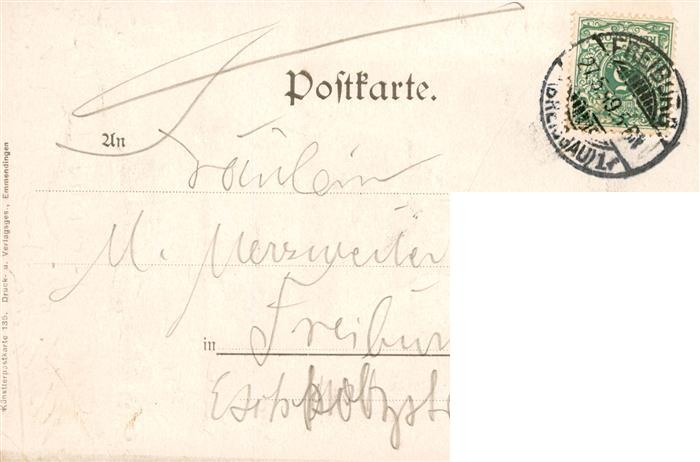 Postkarte.
An
Fräulein
M. Merzweiler
in Freibur
FREIBURG
(BREISGAU)
Künstlerpostkarte 135. Druck- u. Verlagsges., Emmendingen